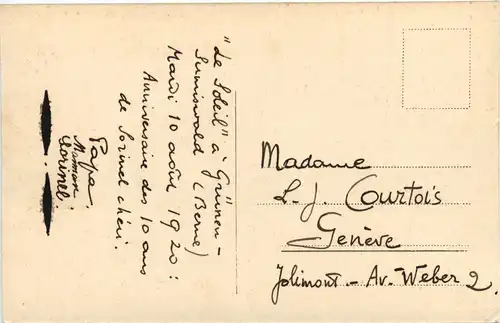 "Le Soleil" à Grünen-
Sumiswald (Berne)
Mardi 10 août 1920:
Anniversaire des 10 ans
de Lorinel chéri.
Papa.
Maman.
Lorinel.
Madame
L. J. Courtois
Genève
Jolimont - Av. Weber 2.